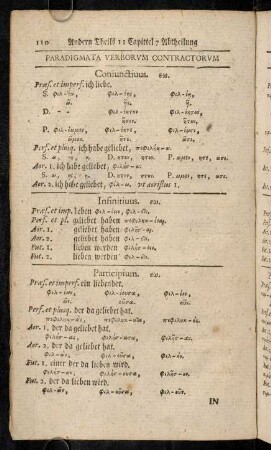 110 Andern Theils 11 Capittel 7 Abtheilung
PARADIGMATA VERBORVM CONTRACTORVM
Coniunctiuus. εω.
Præs. et impers. ich liebe.
S. φιλ-έω, φιλ-έῃς, φιλ-έῃ,
ῶ. ῇς. ῇ.
D. - - φιλ-έητον, φιλ-έητον,
ῆτον. ῆτον.
P. φιλ-έωμεν, φιλ-έητε, φιλ-έωσι,
ῶμεν. ῆτε. ῶσι.
Perf. et plusq. ich habe geliebet, πεφιλήκ-ω.
S. ω, ῃς, ῃ. D. ητον, ητον. P. ωμεν, ητε, ωσι.
Aor. 1. ich habe geliebet, φιλήσ-ω.
S. ω, ῃς, ῃ. D. ητον, ητον. P. ωμεν, ητε, ωσι.
Aor. 2. ich habe geliebet, φίλ-ω, vt aoristus 1.
Infinitiuus. εω.
Præs. et imp. lieben φιλ-έειν, φιλ-εῖν.
Perf. et pl. geliebet haben πεφιληκ-έναι.
Aor. 1. geliebet haben φιλῆσ-αι.
Aor. 2. geliebet haben φιλ-εῖν.
Fut. 1. lieben werden φιλήσ-ειν.
Fut. 2. lieben werden φιλ-εῖν.
Participium. εω.
Præs. et imperf. ein liebender.
φιλ-έων, φιλ-έουσα, φιλ-έον,
ῶν. οῦσα. οῦν.
Perf. et plusq. der da geliebet hat.
πεφιληκ-ὼς, πεφιληκ-υῖα, πεφιληκ-ός.
Aor. 1. der da geliebet hat.
φιλήσ-ας, φιλήσ-ασα, φιλῆσ-αν.
Aor. 2. der da geliebet hat.
φιλ-ὼν, φιλ-οῦσα, φιλ-όν.
Fut. 1. einer der da lieben wird.
φιλήσ-ων, φιλήσ-ουσα, φιλῆσ-ον.
Fut. 2. der da lieben wird.
φιλ-ῶν, φιλ-οῦσα, φιλ-οῦν.
IN